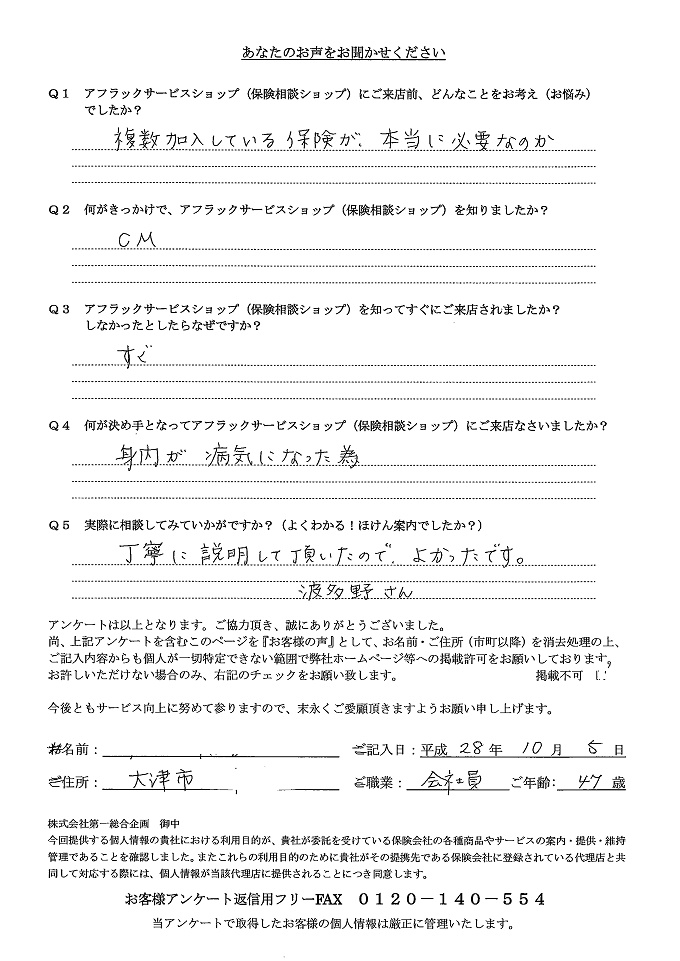 あなたのお声をお聞かせください
Ｑ１　アフラックサービスショップ（保険相談ショップ）にご来店前、どんなことをお考え（お悩み）
でしたか？
複数加入している保険が、本当に必要なのか
Ｑ２　何がきっかけで、アフラックサービスショップ（保険相談ショップ）を知りましたか？
ＣＭ
Ｑ３　アフラックサービスショップ（保険相談ショップ）を知ってすぐにご来店されましたか？
しなかったとしたらなぜですか？
すぐ
Ｑ４　何が決め手となってアフラックサービスショップ（保険相談ショップ）にご来店なさいましたか？
身内が病気になった為
Ｑ５　実際に相談してみていかがですか？（よくわかる！ほけん案内でしたか？）
丁寧に説明して頂いたので、よかったです。
波多野さん
アンケートは以上となります。ご協力頂き、誠にありがとうございました。
尚、上記アンケートを含むこのページを『お客様の声』として、お名前・ご住所（市町以降）を消去処理の上、
ご記入内容からも個人が一切特定できない範囲で弊社ホームページ等への掲載許可をお願いしております。
お許しいただけない場合のみ、右記のチェックをお願い致します。　掲載不可
今後ともサービス向上に努めて参りますので、末永くご愛顧頂きますようお願い申し上げます。
お名前：　ご記入日：平成 28 年 10 月 5 日
ご住所：大津市　ご職業：会社員　ご年齢：47 歳
株式会社第一総合企画　御中
今回提供する個人情報の貴社における利用目的が、貴社が委託を受けている保険会社の各種商品やサービスの案内・提供・維持
管理であることを確認しました。またこれらの利用目的のために貴社がその提携先である保険会社に登録されている代理店と共
同して対応する際には、個人情報が当該代理店に提供されることにつき同意します。
お客様アンケート返信用フリーFAX　０１２０－１４０－５５４
当アンケートで取得したお客様の個人情報は厳正に管理いたします。